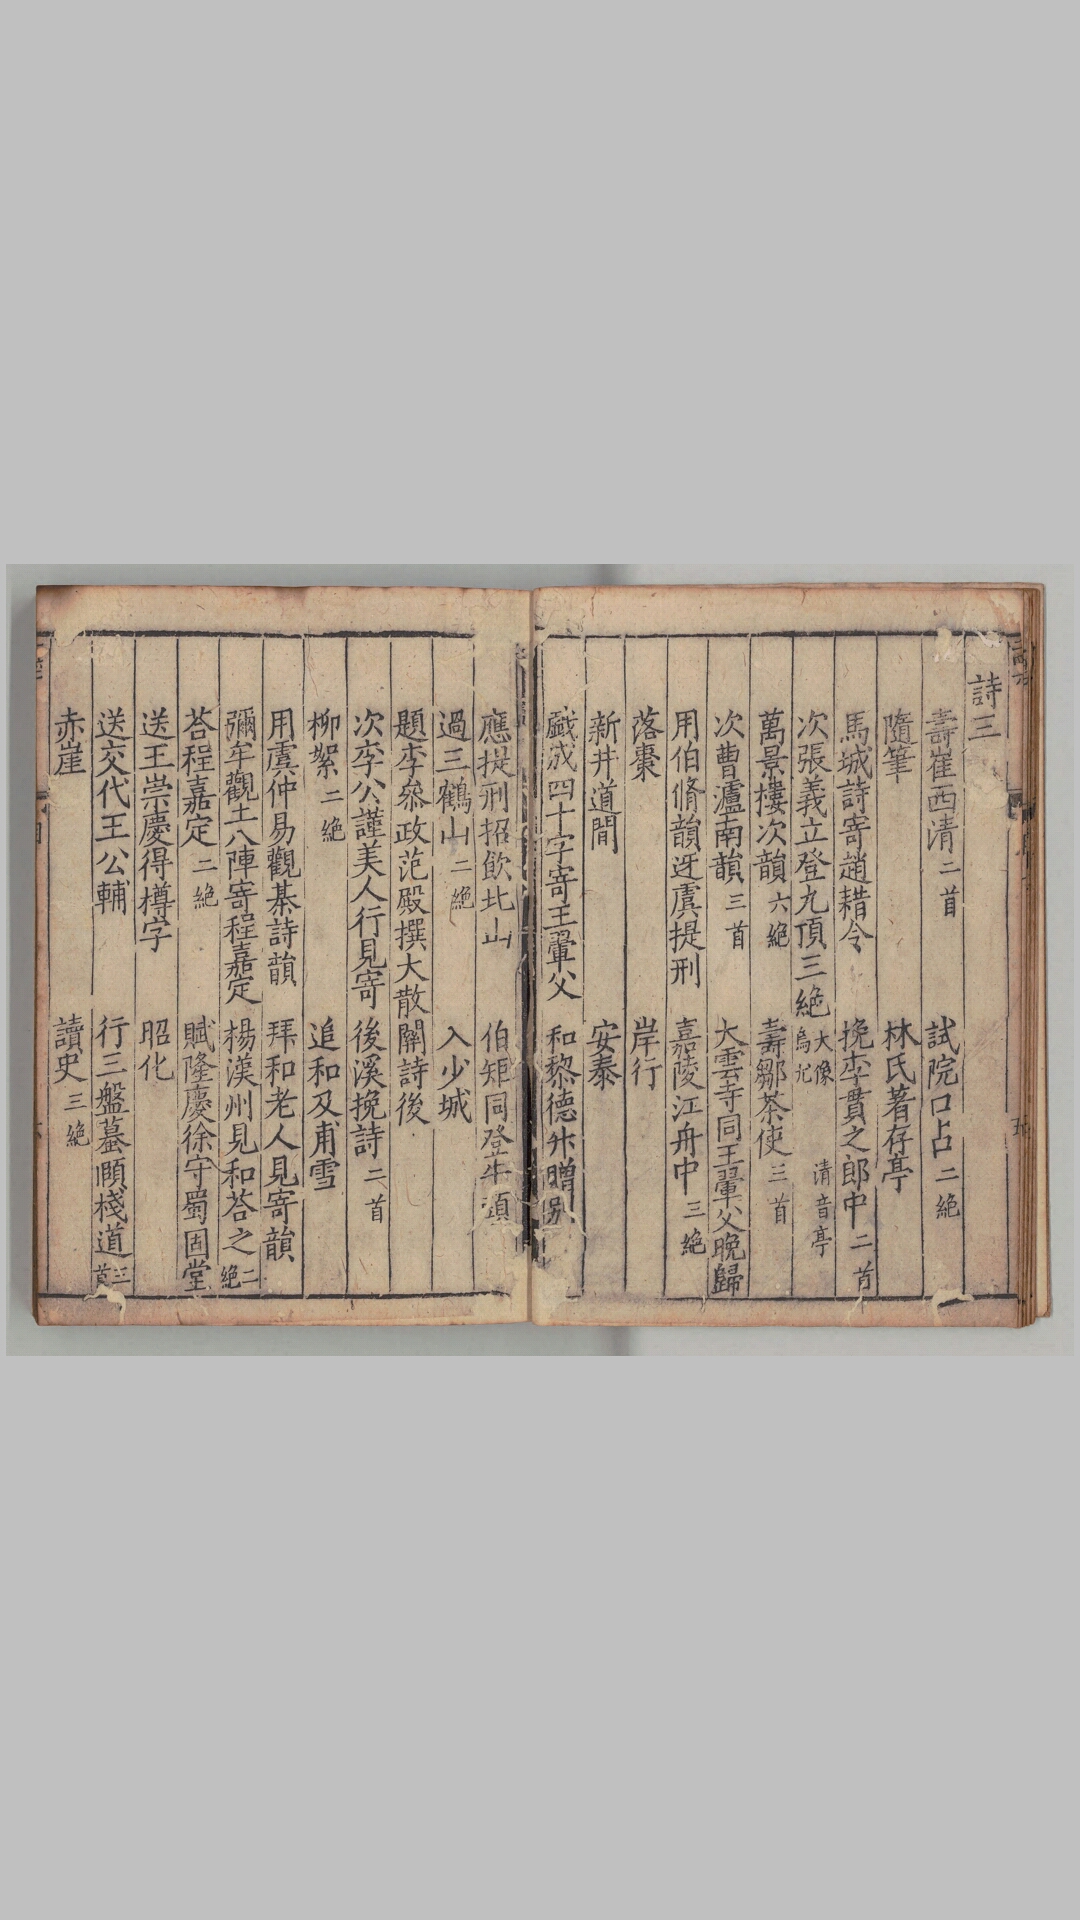 詩三
壽崔西清二首 試院口占二絶
隨筆 林氏著存亭
馬城詩寄趙耤令 挽李貫之郎中二首
次張義立登九頂三絶大像 烏尤 清音亭
萬景樓次韻六絶 壽鄒茶使三首
次曹瀘南韻三首 大雲寺同王翬父晚歸
用伯脩韻迓虞提刑 嘉陵江舟中三絶
落棗 岸行
新井道間 安泰
戲成四十字寄王翬父 和黎德升贈別
應提刑招飲北山 伯矩同登牛頭
過三鶴山二絶 入少城
題李叅政范殿撰大散關詩後
次李公謹美人行見寄 後溪挽詩二首
柳絮二絶 追和及甫雪
用虞仲易觀棊詩韻 拜和老人見寄韻
彌牟觀土八陣寄程嘉定 楊漢州見和荅之二絶
荅程嘉定二絶 賦隆慶徐守蜀固堂
送王崇慶得樽字 昭化
送交代王公輔 行三盤蟇頥棧道三首
赤崖 讀史三絶